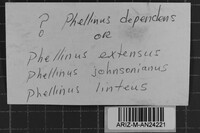 ? Phellinus dependens
OR
Phellinus extensus
Phellinus johnsonianus
Phellinus linteus
ARIZ-M-AN24221